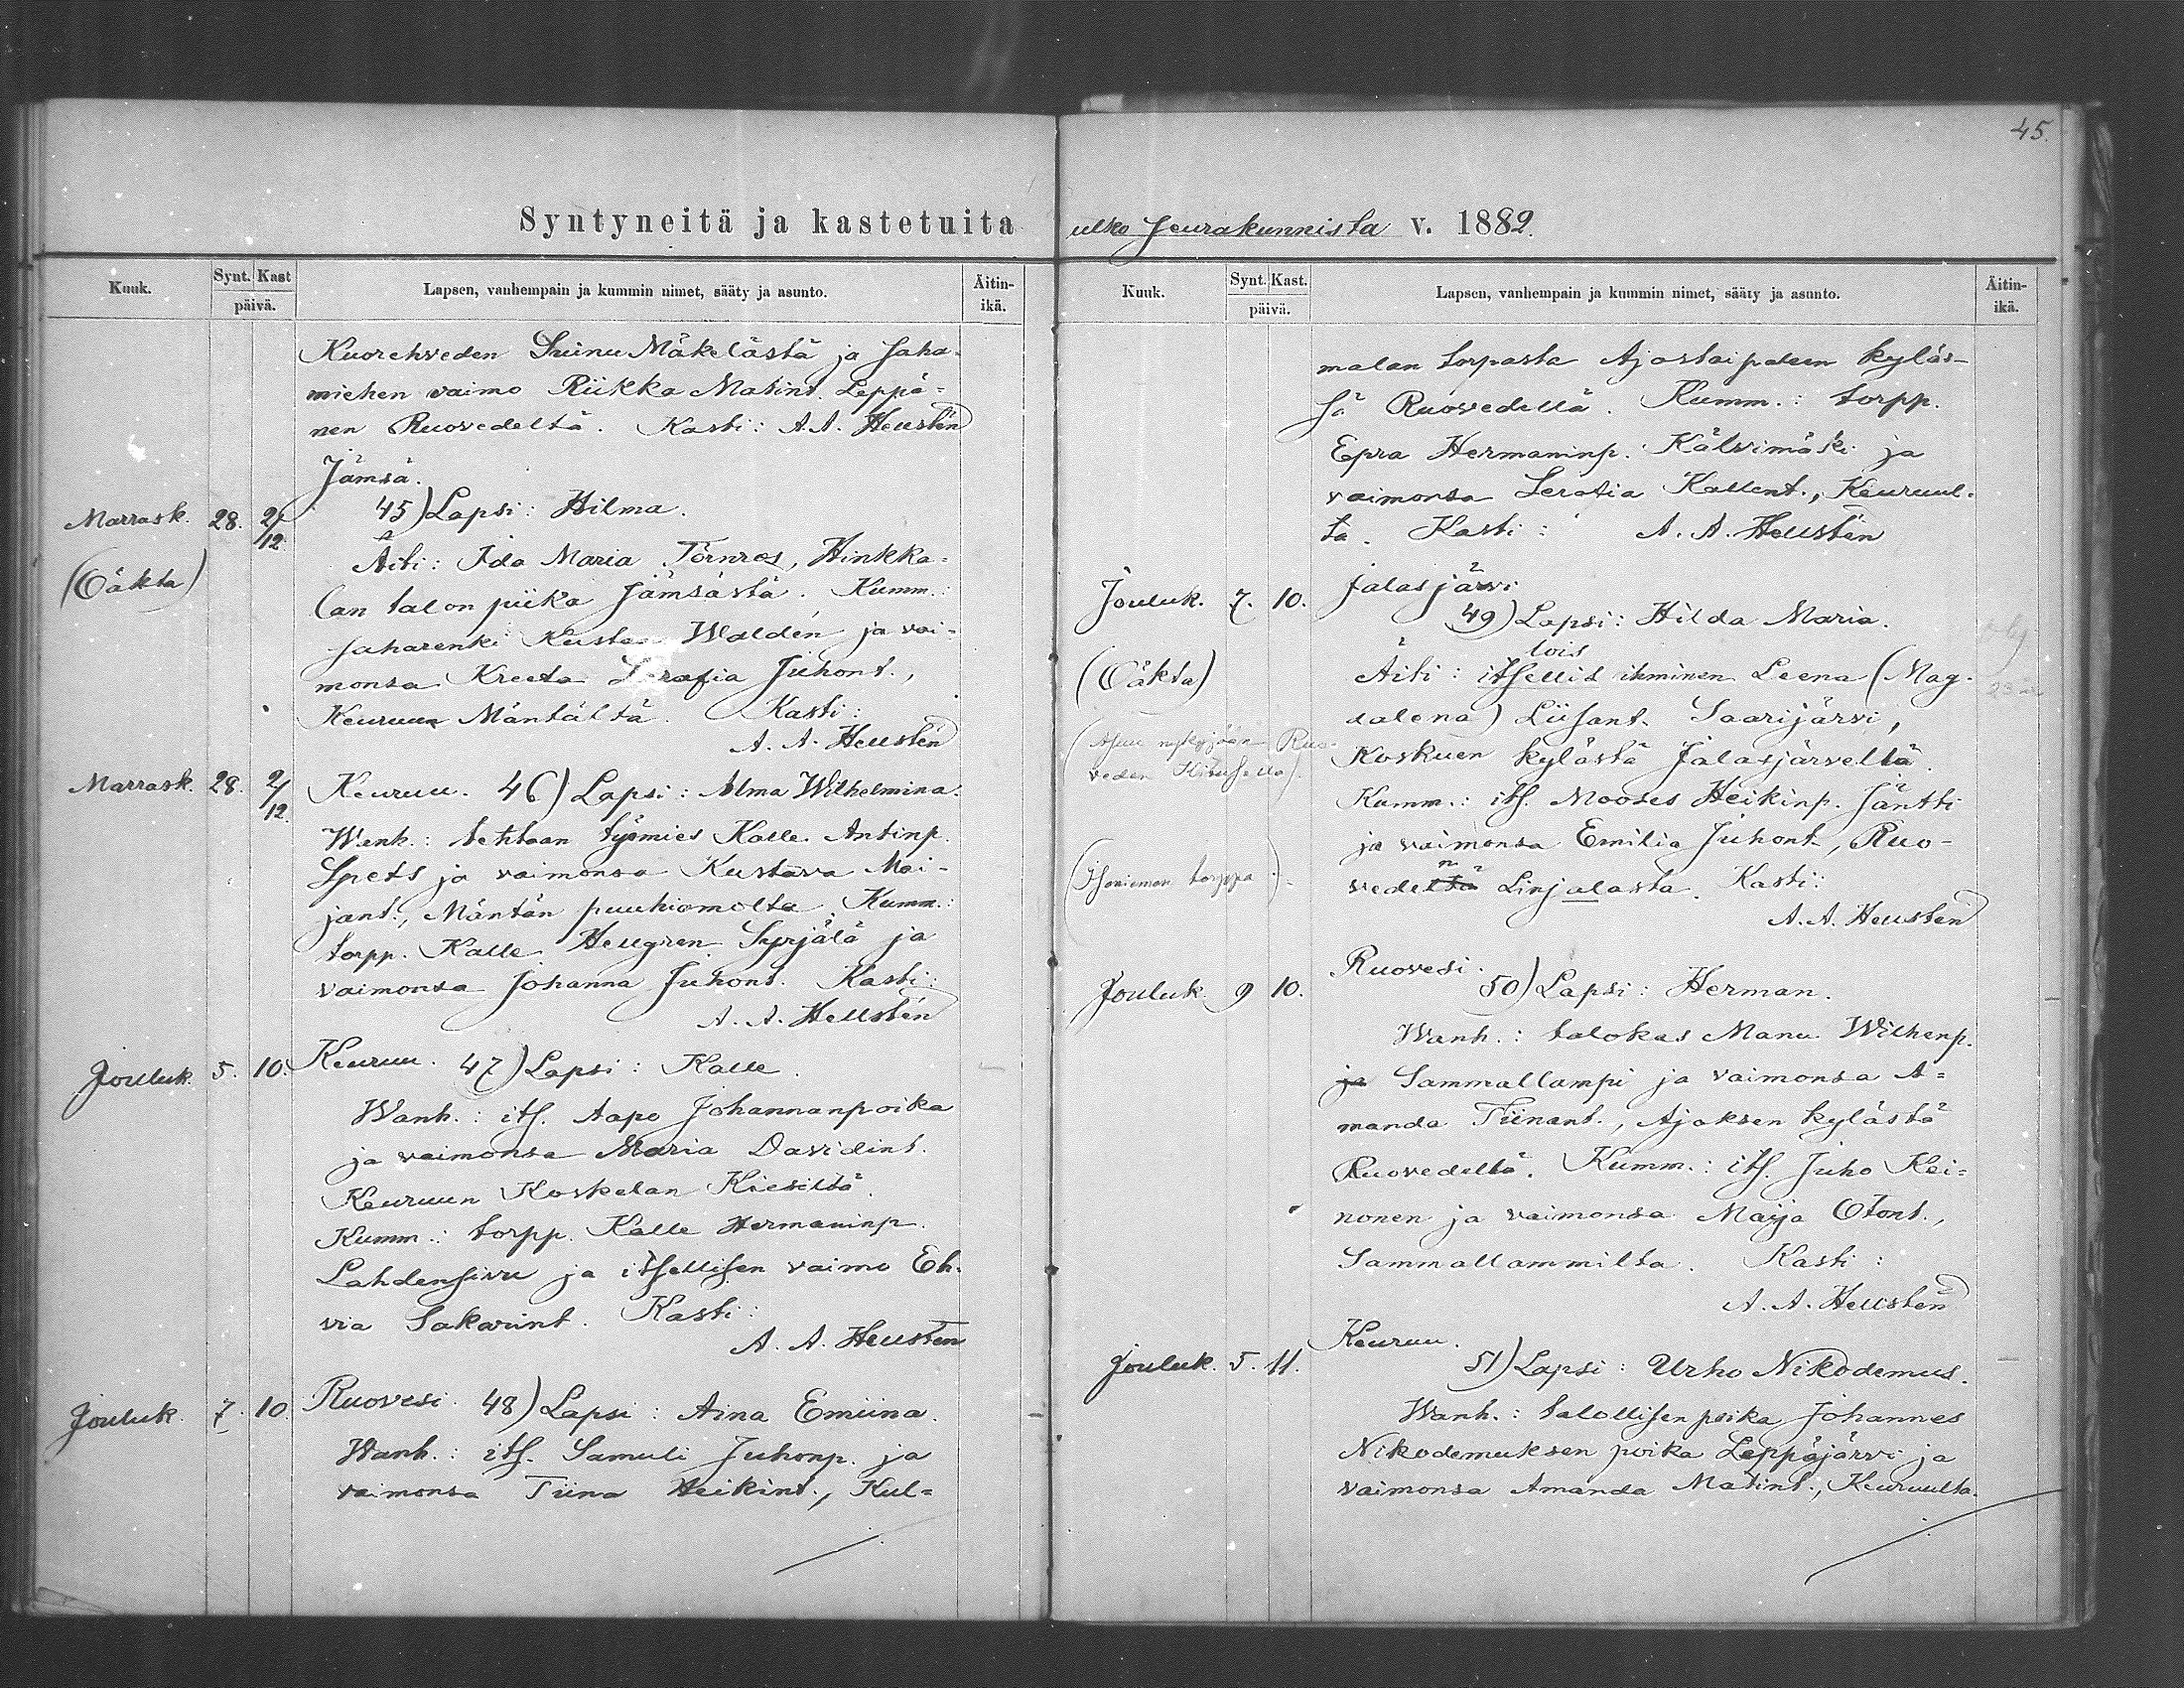 45.
Syntyneitä ja kastetuita
Kuuk. Synt. Kast päivä. Lapsen, vanhempain ja kummin nimet, sääty ja asunto. Äitin-ikä.
Kuorehveden Suinu Mäkelästä ja saha-
miehen vaimo Riikka Matint. Leppä-
nen Ruovedeltä. Kasti: A. A. Hellstén
Jämsä.
Marrask. 28. 2/12. 45) Lapsi: Hilma.
(Oäkta)
Äiti: Ida Maria Törnros, Hinkka-
lan talon piika Jämsästä. Kumm.:
saharenki Kusta Waldén ja vai-
monsa Kreeta Serafia Juhont.,
Keuruun Mäntältä. Kasti:
A. A. Hellstén
Marrask. 28. 2/12. Keuruu. 46) Lapsi: Alma Wilhelmina.
Wanh.: tehtaan työmies Kalle Antinp.
Spets ja vaimonsa Kustava Mai-
jant., Mäntän puuhiomolta. Kumm.:
torpp. Kalle Hellgren Syrjälä ja
vaimonsa Johanna Juhont. Kasti:
A. A. Hellstén
Jouluk. 5. 10. Keuruu. 47) Lapsi: Kalle.
Wanh.: its. Aapo Johannanpoika
ja vaimonsa Maria Davidint.
Keuruun Koskelan Kiesiltä.
Kumm.: torpp. Kalle Hermaninp.
Lahdensivu ja itsellisen vaimo Eh-
via Sakarint. Kasti:
A. A. Hellstén
Jouluk. 7. 10. Ruovesi. 48) Lapsi: Aina Emiina.
Wanh.: its. Samuli Juhonp. ja
vaimonsa Tiina Heikint., Kul-
ulko seurakunnista v. 1882.
Kuuk. Synt. Kast. päivä. Lapsen, vanhempain ja kummin nimet, sääty ja asunto. Äitin-ikä.
malan torpasta Ajostaipaleen kyläs-
sä Ruovedellä. Kumm.: torpp.
Epra Hermaninp. Kälvimäki ja
vaimonsa Serafia Kallent., Keuruul-
ta. Kasti: A. A. Hellstén
Jalasjärvi.
Jouluk. 7. 10. 49) Lapsi: Hilda Maria.
lois
(Oäkta) Äiti: itsellis ihminen Leena (Mag-
dalena) Liisant. Saarijärvi,
(Asuu nykyjään Ruo-
veden
Koskuen kylästä Jalasjärveltä.
Kumm.: its. Mooses Heikinp. Jäntti
ja vaimonsa Emilia Juhont., Ruo-
n
(Isoniemen torppa.) vedeltä Linjalasta. Kasti:
A. A. Hellstén
Ruovesi.
Jouluk. 9 10. 50) Lapsi: Herman.
Wanh.: talokas Manu Wilhenp.
ja Sammallampi ja vaimonsa A-
manda Tiinant., Ajoksen kylästä
Ruovedeltä. Kumm.: its. Juho Kei-
nonen ja vaimonsa Maija Otont.,
Sammallammilta. Kasti:
A. A. Hellstén
Keuruu.
Jouluk. 5. 11. 51) Lapsi: Urho Nikodemus.
Wanh.: talollisen poika Johannes
Nikodemuksen poika Leppäjärvi ja
vaimonsa Amanda Matint., Keuruulta.